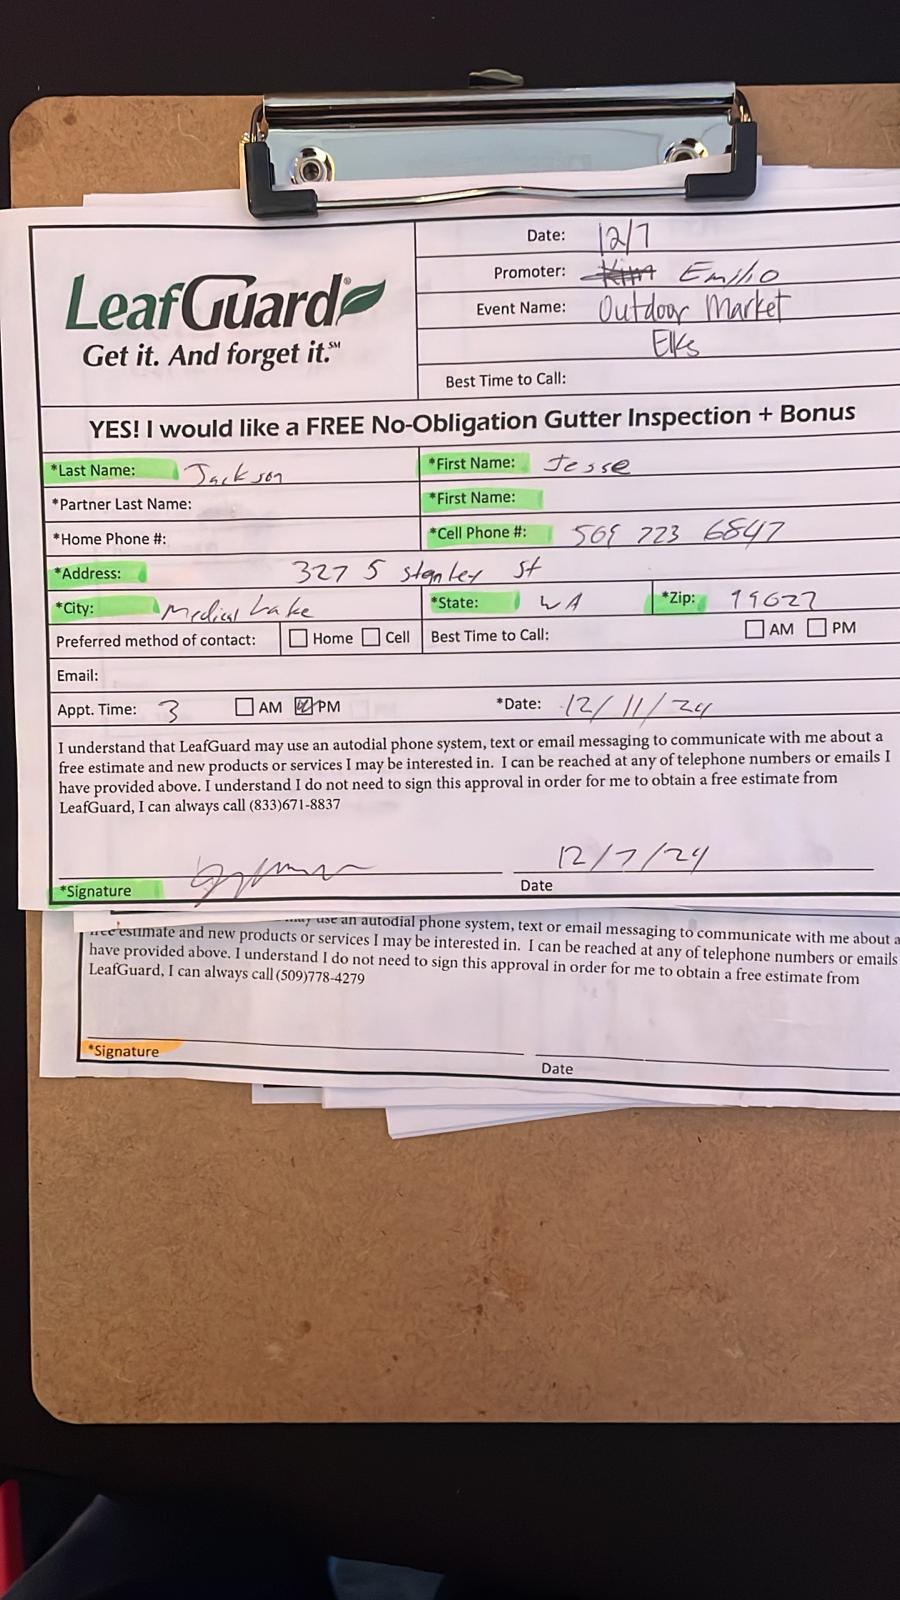 LeafGuard®
Get it. And forget it.℠
Date: 12/7
Promoter: Emilio
Event Name: Outdoor Market
Elks
Best Time to Call:
YES! I would like a FREE No-Obligation Gutter Inspection + Bonus
*Last Name: Jackson *First Name: Jesse
*Partner Last Name: *First Name:
*Home Phone #: *Cell Phone #: 509 723 6847
*Address: 327 S Stanley St
*City: Medical Lake *State: WA *Zip: 99022
Preferred method of contact: Home Cell Best Time to Call: AM PM
Email:
Appt. Time: 3 AM PM *Date: 12/11/24
I understand that LeafGuard may use an autodial phone system, text or email messaging to communicate with me about a
free estimate and new products or services I may be interested in. I can be reached at any of telephone numbers or emails I
have provided above. I understand I do not need to sign this approval in order for me to obtain a free estimate from
LeafGuard, I can always call (833)671-8837
12/7/24
*Signature Date
may use an autodial phone system, text or email messaging to communicate with me about a
free estimate and new products or services I may be interested in. I can be reached at any of telephone numbers or emails
have provided above. I understand I do not need to sign this approval in order for me to obtain a free estimate from
LeafGuard, I can always call (509)778-4279
*Signature Date